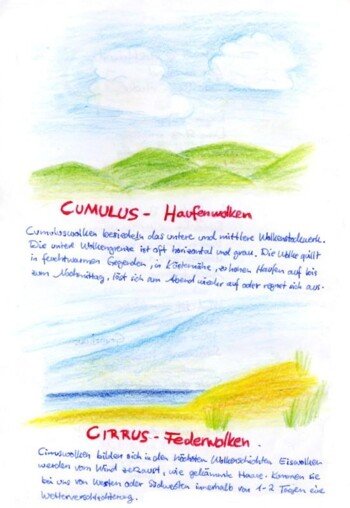 CUMULUS - Haufenwolken
Cumuluswolken besiedeln das untere und mittlere Wolkenstockwerk.
Die untere Wolkengrenze ist oft horizontal und grau. Die Wolke quillt
in feuchtwarmen Gegenden, in Küstennähe, zu hohen Haufen auf bis
zum Nachmittag, löst sich am Abend wieder auf oder regnet sich aus.
CIRRUS - Federwolken.
Cirruswolken bilden sich in den höchsten Wolkenschichten Eiswolken
werden vom Wind zerzaust, wie gekämmte Haare. Kommen sie
bei uns von Westen oder Südwesten innerhalb von 1-2 Tagen eine
Wetterverschlechterung.